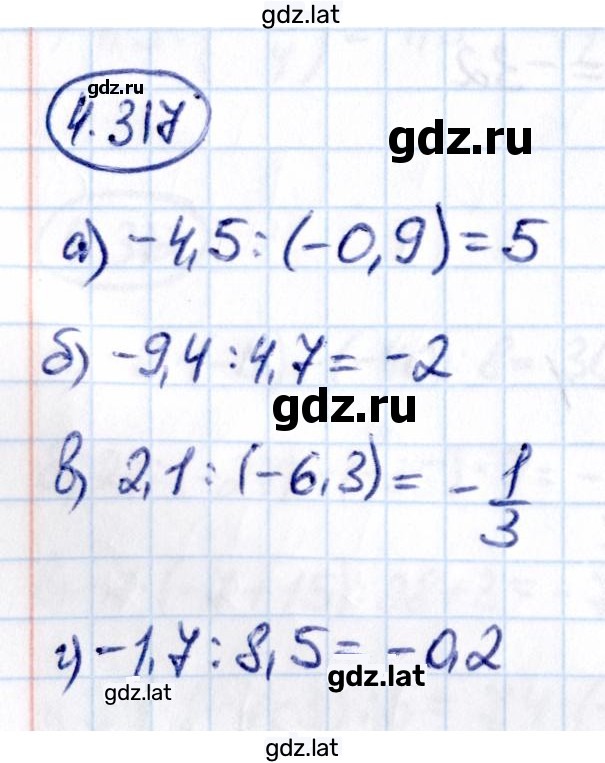 gdz.lat
gdz.lat
4.317
gdz.ru
а) -4,5:(-0,9)=5
б) -9,4:4,7= -2
gdz.ru
в) 2,1:(-6,3)= -1/3
г) -1,7:8,5= -0,2
gdz.lat
gdz.lat
gdz.lat